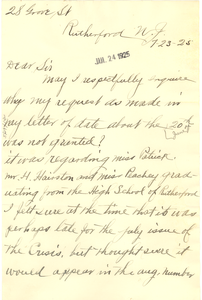 28 Grove, St
Rutherford N. J.
7-23-25
JUL 24 1925
Dear Sir
May I respectfully inquire
why my request as made in
my letter of date about the 20th
was not granted?
it was regarding miss
mr. H. Hairston and miss graduating
from the High School of Rutherford
I felt sure at the time that it was
perhaps late for the july issue of
the Crisis, but thought sure it
would appear in the aug. number